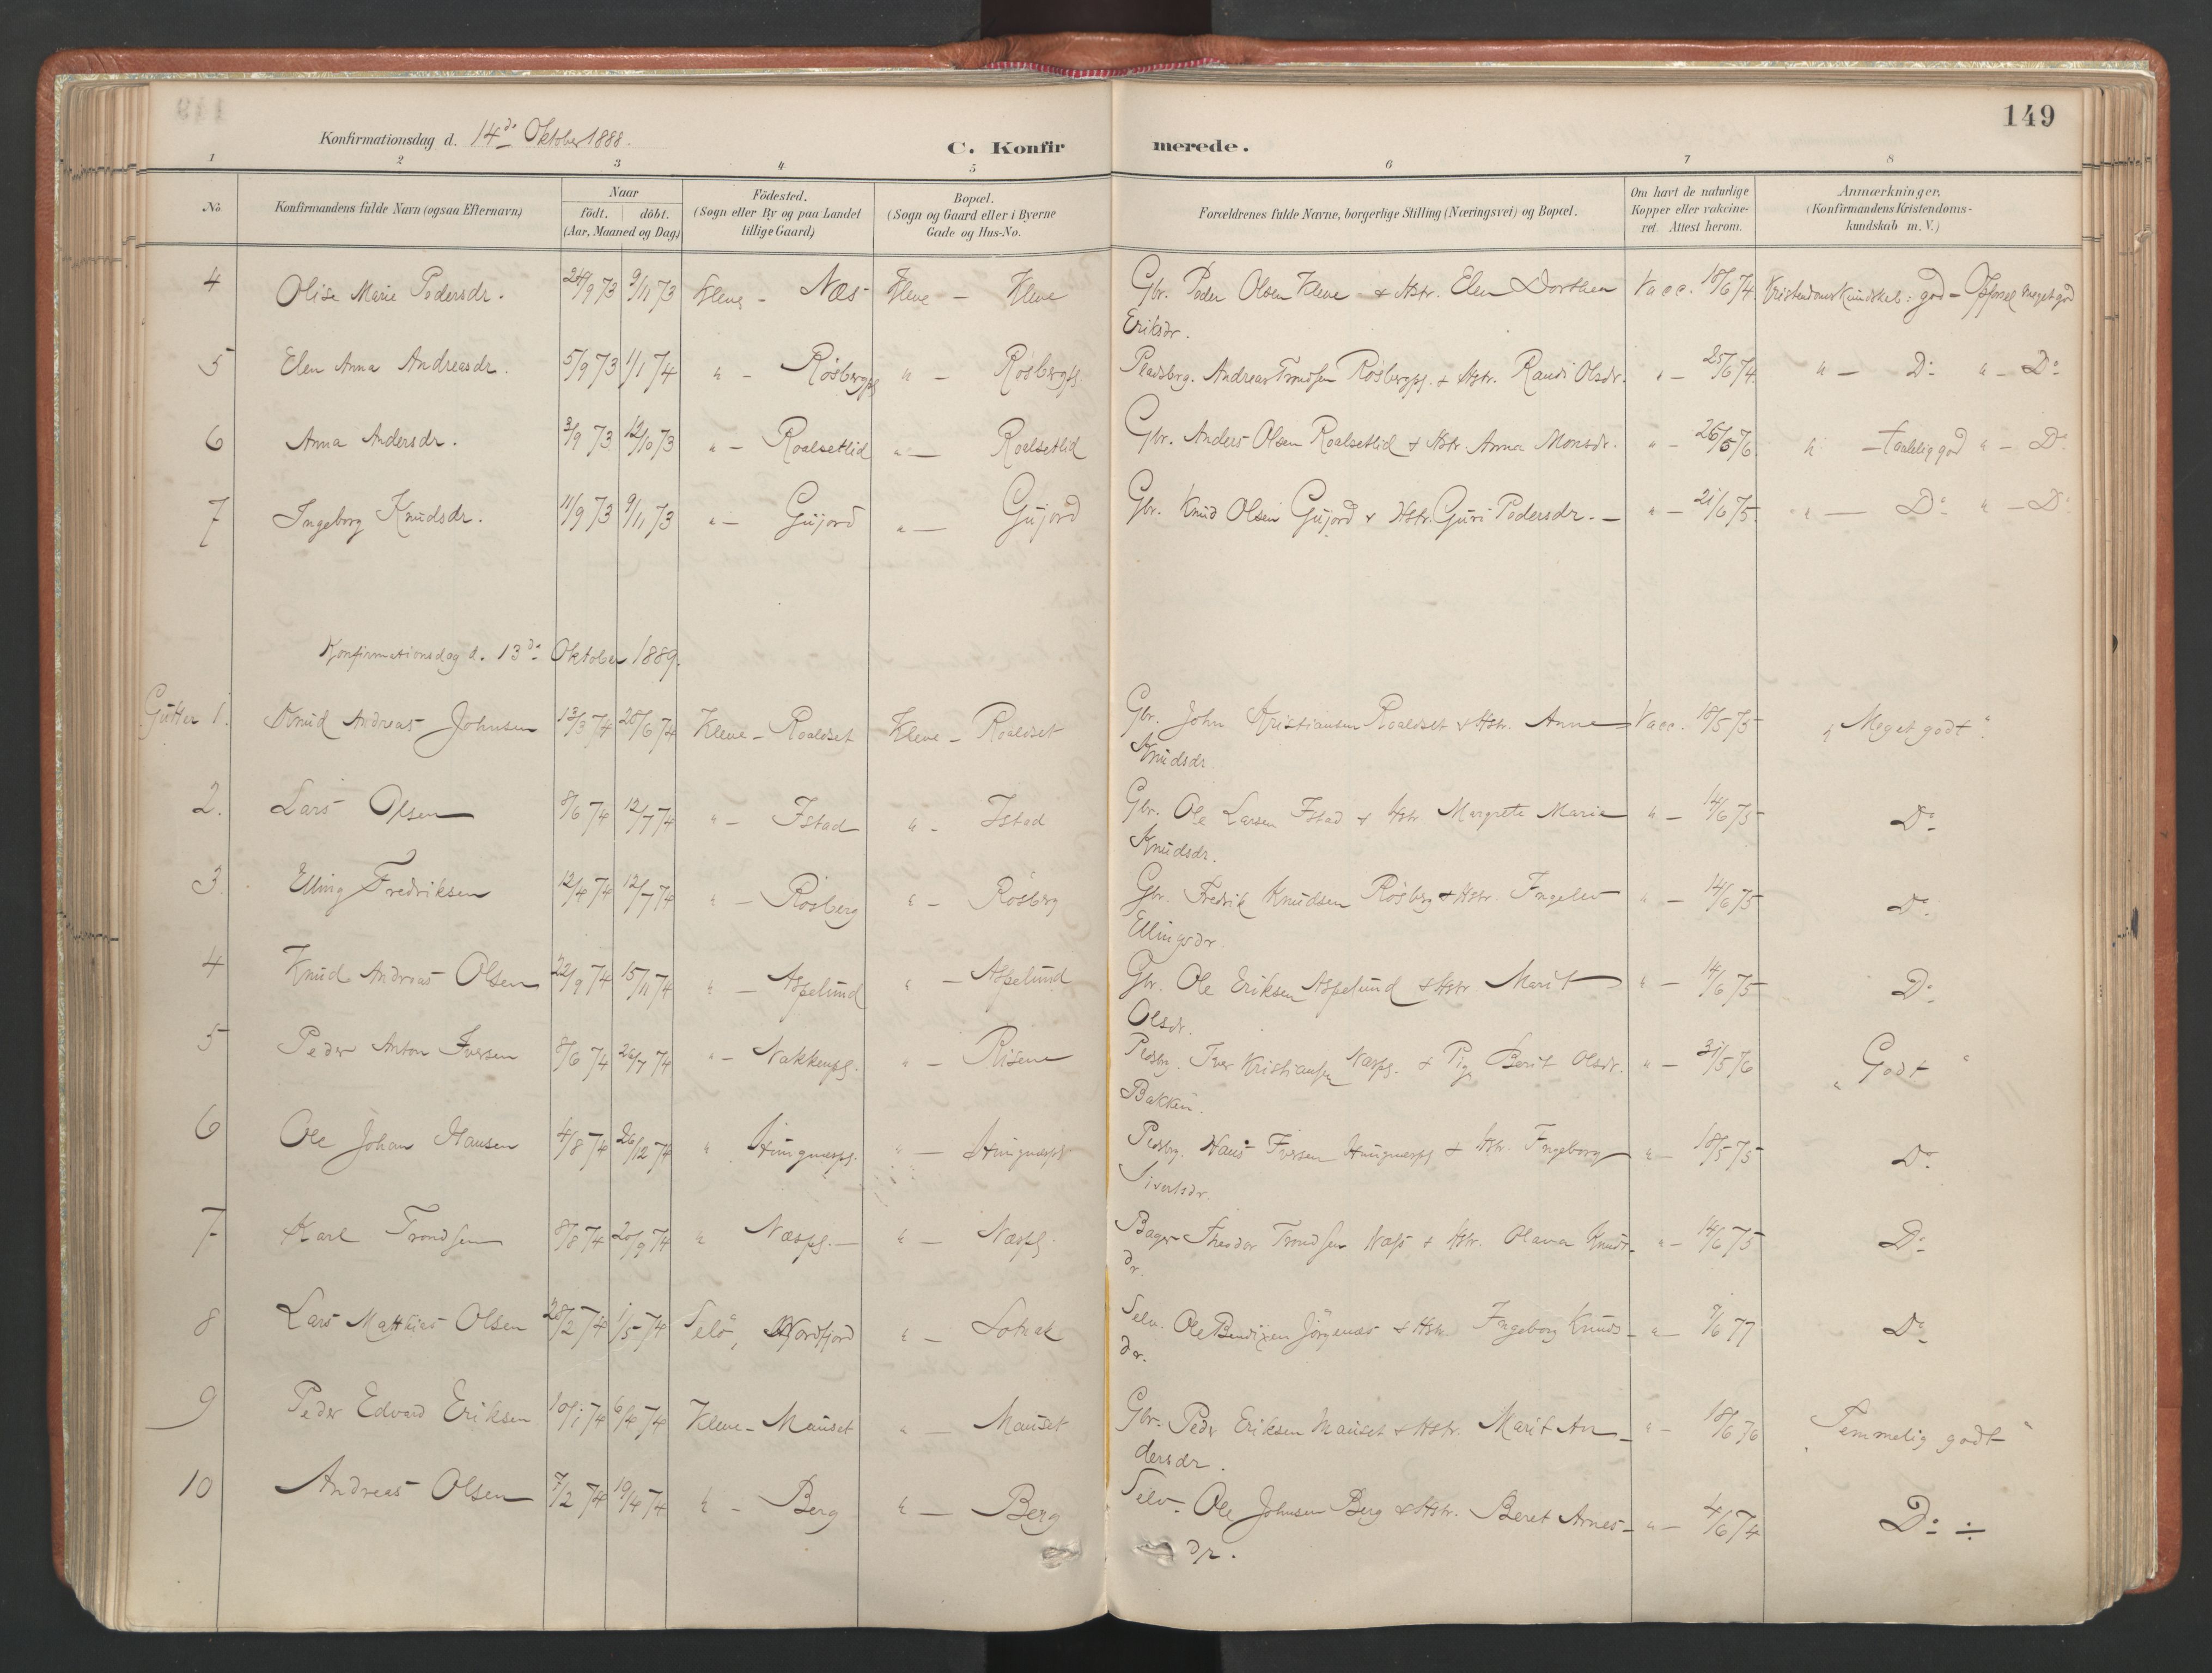 149
Konfirmationsdag d. 14de Oktober 1888.
C. Konfirmerede.
1 2 3 4 5 6 7 8
No.
Konfirmandens fulde Navn (ogsaa Efternavn)
Naar
födt. döbt.
(Aar, Maaned og Dag)
Födested.
(Sogn eller By og paa Landet
tillige Gaard)
Bopæl.
(Sogn og Gaard eller i Byerne
Gade og Hus-No.
Forældrenes fulde Navne, borgerlige Stilling (Næringsvei) og Bopæl.
Om havt de naturlige
Kopper eller vakcine-
ret. Attest herom.
Anmærkninger.
(Konfirmandens Kristendoms-
kundskab m. V.)
4 Olise Marie Pedersdr. 24/9 73 9/11 73 Kleve - Næs Kleve - Kleve Gbr. Peder Olsen Kleve & Hstr. Elen Dorthea Vacc. 18/6 74. Kristendomskundskab: god - Opførsel meget god
Eriksdr.
5 Elen Anna Andreasdr. 5/9 73 1/1 74 " - Rösbergpl. " - Rösbergpl. Pladsbrg. Andreas Trondsen Rösbergpl. & Hstr. Randi Olsdr. " - 25/6 74. " - Do " - Do
6 Anna Andersdr. 3/9 73 12/10 73 " - Roalsetlid " - Roalsetlid Gbr. Anders Olsen Roalsetlid & Hstr. Anna Monsdr. " - 26/5 76. " - taalelig god " - Do
7 Ingeborg Knudsdr. 11/9 73 9/11 73 " - Gujord " - Gujord Gbr. Knud Olsen Gujord & Hstr. Guri Pedersdr. - " - 21/6 75. " - Do " - Do
Konfirmationsdag d. 13de Oktober 1889.
Gutter 1. Knud Andreas Johnsen 13/3 74 28/6 74 Kleve - Roaldset Kleve - Roaldset Gbr. John Kristiansen Roaldset & Hstr. Anne Vacc. 18/5 75 "Meget godt".
Knudsdr.
2. Lars Olsen 8/6 74 12/7 74 " - Istad " - Istad Gbr. Ole Larsen Istad & Hstr. Margrete Marie " - 14/6 75 Do
Knudsdr.
3. Elling Fredriksen 12/4 74 12/7 74 " - Rösberg " - Rösberg Gbr. Fredrik Knudsen Rösberg & Hstr. Ingelev " - 14/6 75 Do
Ellingsdr.
4 Knud Andreas Olsen 22/9 74 15/11 74 " - Aspelund " - Aspelund Gbr. Ole Eriksen Aspelund & Hstr. Marit " - 14/6 75 Do
Olsdr.
5 Peder Anton Iversen 8/6 74 26/7 74 " - Nakkenpl. " - Risene Pladsbrg. Iver Kristiansen Næspl. & Pige Berit Olsdr. " - 31/5 76 "Godt"
Bakken.
6 Ole Johan Hansen 4/8 74 26/12 74 " Hungnæspl. " - Hungnæspl. Pladsbrg. Hans Iversen Hungnæspl. & Hstr. Ingeborg " - 18/5 75 Do
Sivertsdr.
7 Karl Trondsen 8/8 74 20/9 74 " Næspl. - " - Næspl. Bager Theodor Trondsen Næss & Hstr. Olava Knuds- " - 14/6 75 Do
dr.
8 Lars Matthias Olsen 28/2 74 1/5 74 Selö, Nordfjord " - Solbak Selv. Ole Bendixen Jörgenæs & Hstr. Ingeborg Knuds- " - 7/6 77 Do
dr.
9 Peder Edvard Eriksen 10/1 74 6/4 74 Kleve - Mauset " - Mauset Gbr. Peder Eriksen Mauset & Hstr. Marit An- " - 18/6 76 "Temmelig godt"
dersdr.
10 Andreas Olsen 7/2 74 19/4 74 " - Berg " - Berg Selv. Ole Johnsen Berg & Hstr. Beret Arnes- " - 4/6 74 Do ÷
dr.